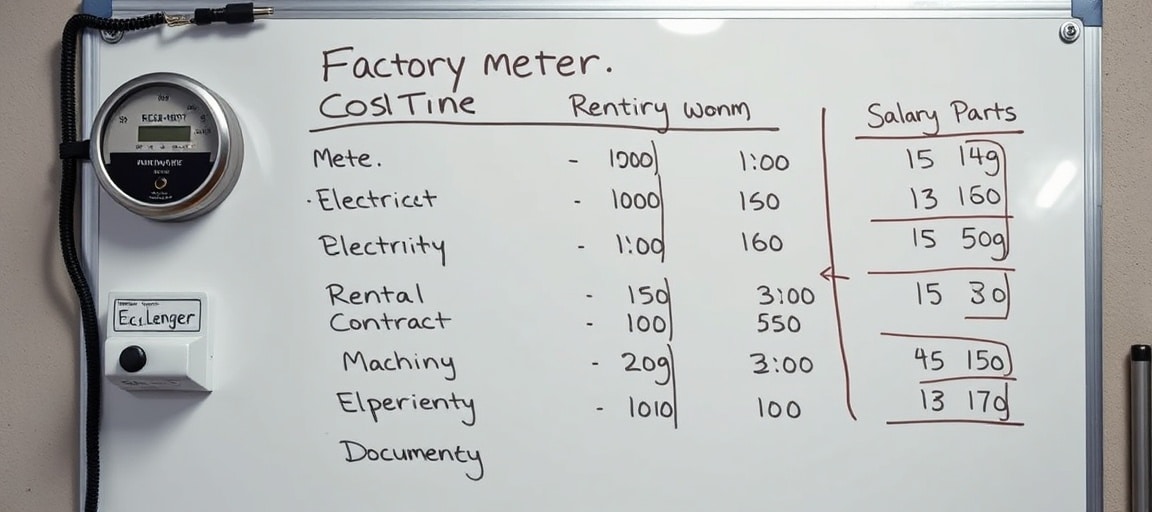 Factory meter.
CoslTine Rentiry wonm Salary Parts
Mete. - 1000 1:00 15 149
·Electricct - 1000 150 13 160
Electriity - 1:00 160 15 509
Rental - 150 3:00 15 30
Contract - 100 550
Machiny - 209 3:00 45 150
Elperienty - 1010 100 13 170
Documenty
Ec.Lenger